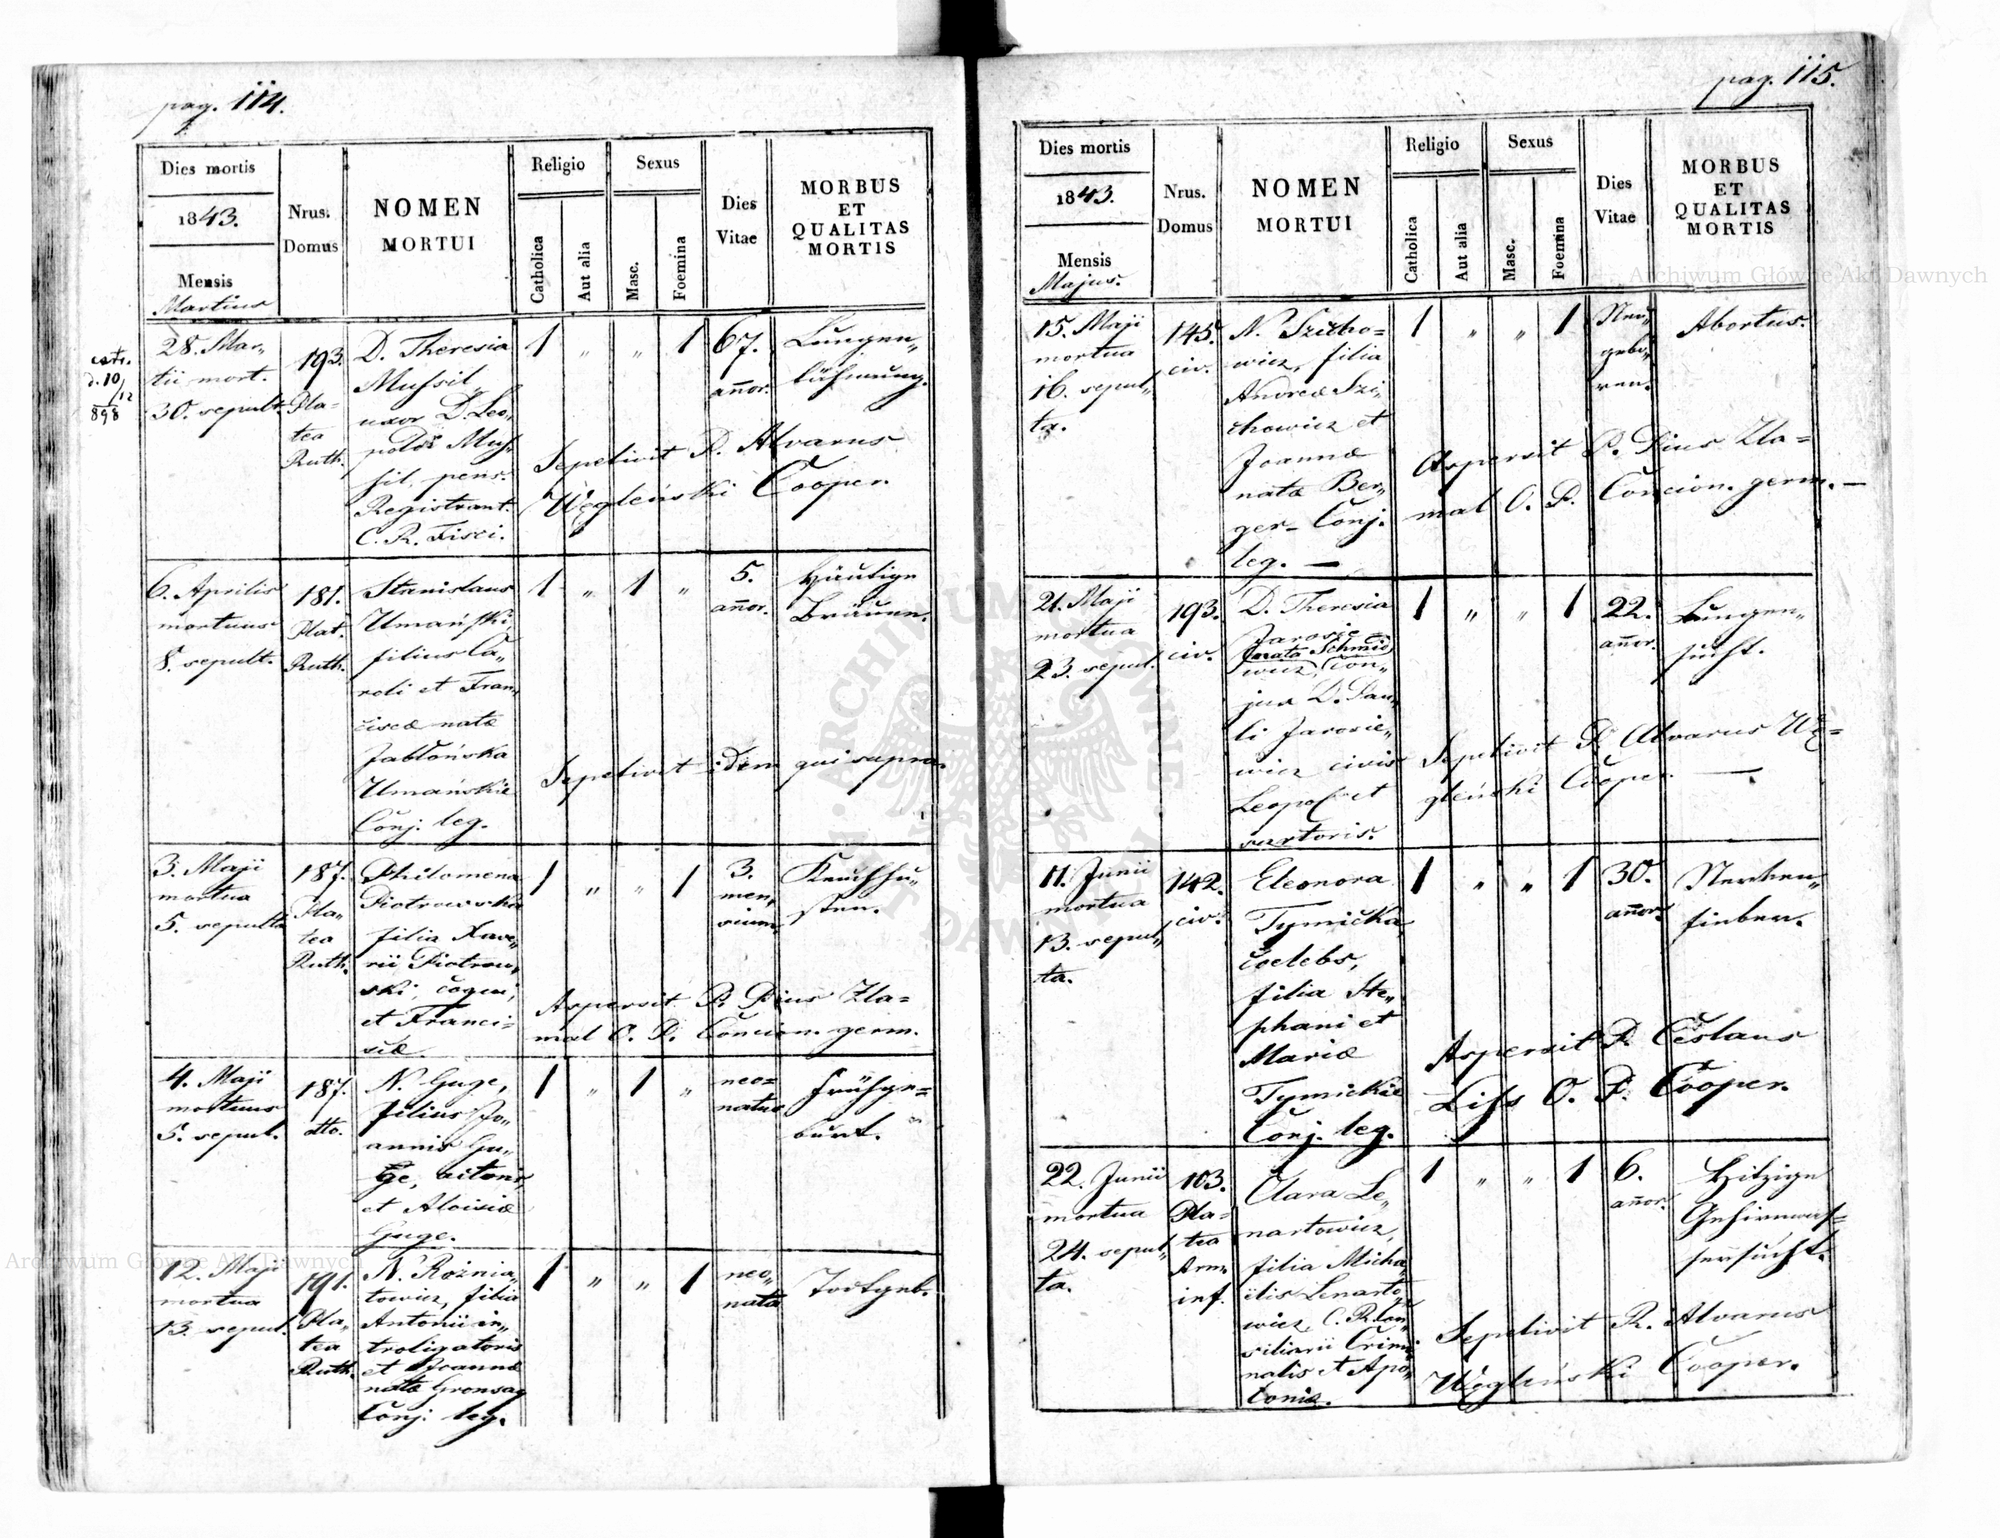 pag. 114.
Dies mortis
1843.
Mensis
Martius
Nrus.
Domus
NOMEN
MORTUI
Religio
Catholica
Aut alia
Sexus
Masc.
Foemina
Dies
Vitae
MORBUS
ET
QUALITAS
MORTIS
extr.
d. 10/12
898
28. Mar„
tii mort.
30. sepult.
193.
Pla-
tea
Ruth.
D. Theresia
Mussil
uxor D. Leo„
poldi Mus„
sil, pens.
Registrant.
C. R. Fisci.
1 „ „ 1
67.
añor.
Lungen„
lähmung.
Sepelivit P. Alvarus
Węgleński Cooper.
6. Aprilis
mortuus
8. sepult.
181.
Plat.
Ruth.
Stanislaus
Umański,
filius Ca„
roli et Fran„
ciscæ natæ
Jabłońska
Umańskie
Conj. leg.
1 „ 1 „
5.
añor.
Häutige
Bräune.
Sepelivit idem qui supra.
3. Maji
mortua
5. sepulta
187.
Pla-
tea
Ruth.
Philomena
Piotrowska
filia Xave„
rii Piotrow„
ski, coqui,
et Franci-
scæ
1 „ „ 1
3.
men„
sium.
Keuchhu„
sten.
Aspersit P. Pius Zla=
mal O. P. Concion. germ.
4. Maji
mortuus
5. sepul.
187.
dtto.
N. Guge,
filius Jo„
annis Gu„
ge,
et Aloisiæ
Guge.
1 „ 1 „
neo=
natus
Frühge=
burt.
12. Maji
mortua
13. sepul.
191.
Pla„
tea
Ruth.
N. Roznia„
towicz, filia
Antonii in„
troligatoris
et Joannæ
natæ Gronsag
Conj. leg.
1 „ „ 1
neo„
nata
Todtgeb.
pag. 115.
Dies mortis
1843.
Mensis
Majus.
Nrus.
Domus
NOMEN
MORTUI
Religio
Catholica
Aut alia
Sexus
Masc.
Foemina
Dies
Vitae
MORBUS
ET
QUALITAS
MORTIS
15. Maji
mortua
16. sepul„
ta.
145.
civ.
N. Szicho=
wicz, filia
Andreæ Szi„
chowicz et
Joannæ
natæ Ber„
ger Conj.
leg. —
1 „ „ 1
Neu„
gebo„
ren.
Abortus.
Aspersit P. Pius Zla=
mal O. P. Concion. germ. —
21. Maji
mortua
23. sepul.
193.
civ.
D. Theresia
Jarosie
nata Schmid
wicz, con„
jux D. Pau„
li Jarosie„
wicz civis
Leopol. et
sartoris.
1 „ „ 1
22.
añor.
Lungen„
sucht.
Sepelivit P. Alvarus Wę=
gleński Cooper. —
11. Junii
mortua
13. sepul„
ta.
142.
civ.
Eleonora
Tymicka,
coelebs,
filia Ste„
phani et
Mariæ
Tymickie
Conj. leg.
1 „ „ 1
30.
añor.
Nerven„
fieber.
Aspersit P. Ceslaus
Liss O. P. Cooper.
22. Junii
mortua
24. sepul„
ta.
103.
Pla-
tea
Arm.
inf.
Clara Le„
nartowicz,
filia Micha„
elis Lenarto„
wicz, C. R. Con„
siliarii Crimi
nalis et Apo„
loniæ.
1 „ „ 1
6.
añor.
Hitzige
Gehirnwas=
sersucht.
Sepelivit P. Alvarus
Węgleński Cooper.
Archiwum Główne Akt Dawnych
Archiwum Główne Akt Dawnych
ARCHIWUM GŁÓWNE AKT DAWNYCH